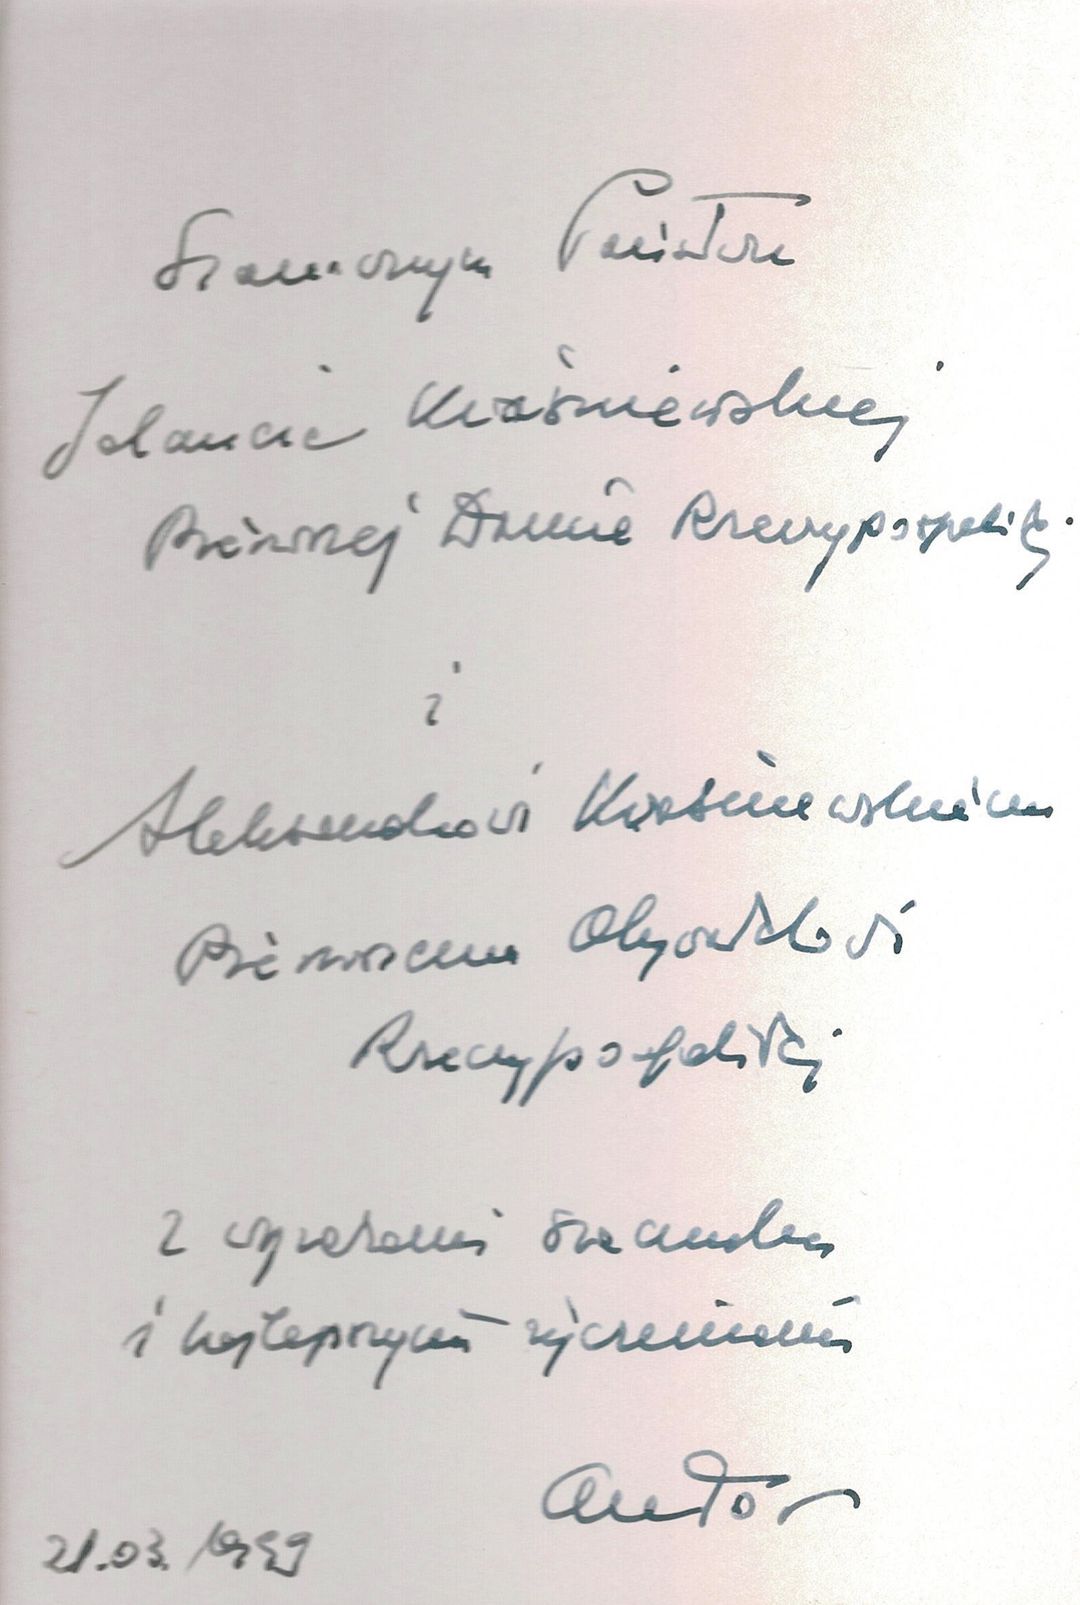 Szanownym Państwu
Jolancie Kwaśniewskiej
Pierwszej Damie Rzeczypospolitej
i
Aleksandrowi Kwaśniewskiemu
Pierwszemu Obywatelowi
Rzeczypospolitej
z wyrazami szacunku
i najlepszymi życzeniami
autor
21.03.1999